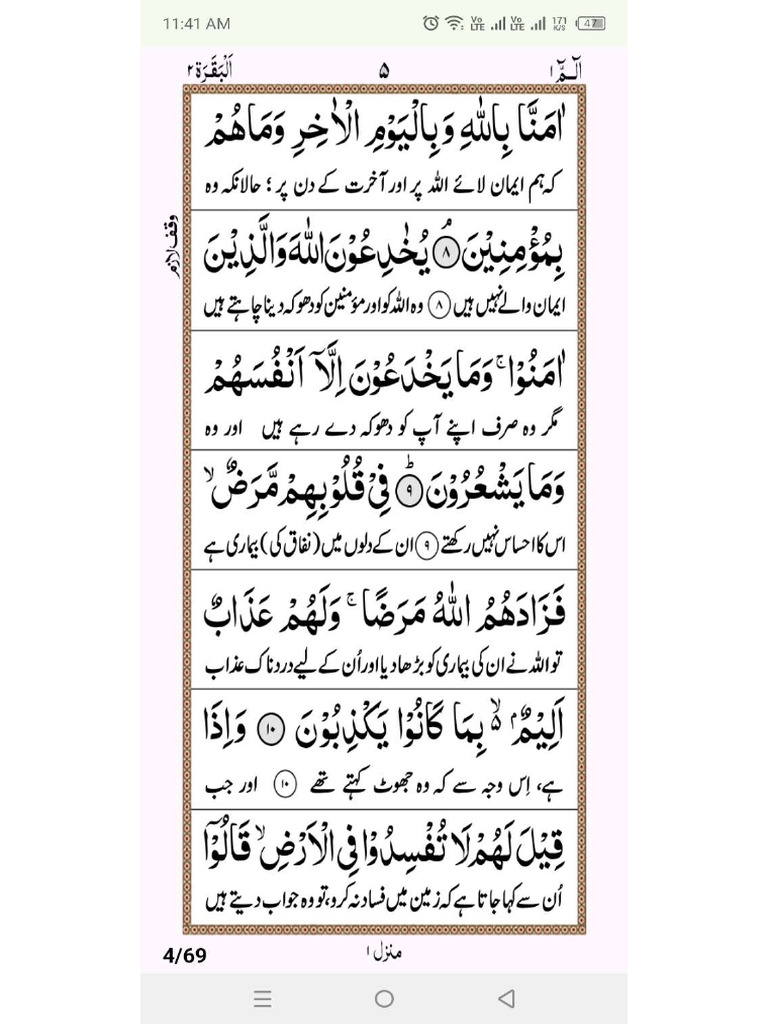 11:41 AM Vo LTE Vo LTE 171 K/S 47
الٓمّٓ ۱ ۵ اَلْبَقَرَة ۲
اٰمَنَّا بِاللّٰهِ وَبِالْیَوْمِ الْاٰخِرِ وَمَاهُمْ
کہ ہم ایمان لائے اللہ پر اور آخرت کے دن پر ؛ حالانکہ وہ
وقف لازم
بِمُؤْمِنِیْنَ ۘ ۸ یُخٰدِعُوْنَ اللّٰهَ وَالَّذِیْنَ
ایمان والے نہیں ہیں ۸ وہ اللہ کو اور مؤمنین کو دھوکہ دینا چاہتے ہیں
اٰمَنُوْا ۚ وَمَا یَخْدَعُوْنَ اِلَّاۤ اَنْفُسَهُمْ
مگر وہ صرف اپنے آپ کو دھوکہ دے رہے ہیں اور وہ
وَمَا یَشْعُرُوْنَ ؕ ۹ فِیْ قُلُوْبِهِمْ مَّرَضٌ ۙ
اس کا احساس نہیں رکھتے ۹ ان کے دلوں میں (نفاق کی) بیماری ہے
فَزَادَهُمُ اللّٰهُ مَرَضًا ۚ وَلَهُمْ عَذَابٌ
تو اللہ نے ان کی بیماری کو بڑھا دیا اور اُن کے لیے دردناک عذاب
اَلِیْمٌۢ ۙ۬ بِمَا كَانُوْا یَكْذِبُوْنَ ۱۰ وَاِذَا
ہے، اِس وجہ سے کہ وہ جھوٹ کہتے تھے ۱۰ اور جب
قِیْلَ لَهُمْ لَا تُفْسِدُوْا فِی الْاَرْضِ ۙ قَالُوْۤا
اُن سے کہا جاتا ہے کہ زمین میں فساد نہ کرو، تو وہ جواب دیتے ہیں
منزل ۱
4/69